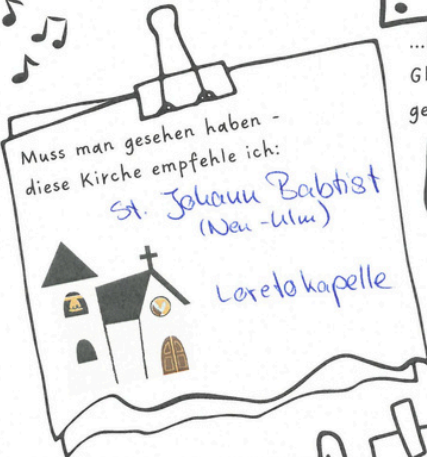 Muss man gesehen haben -
diese Kirche empfehle ich:
St. Johann Babtist
(Neu-Ulm)
Loretokapelle
...
Gl
ge